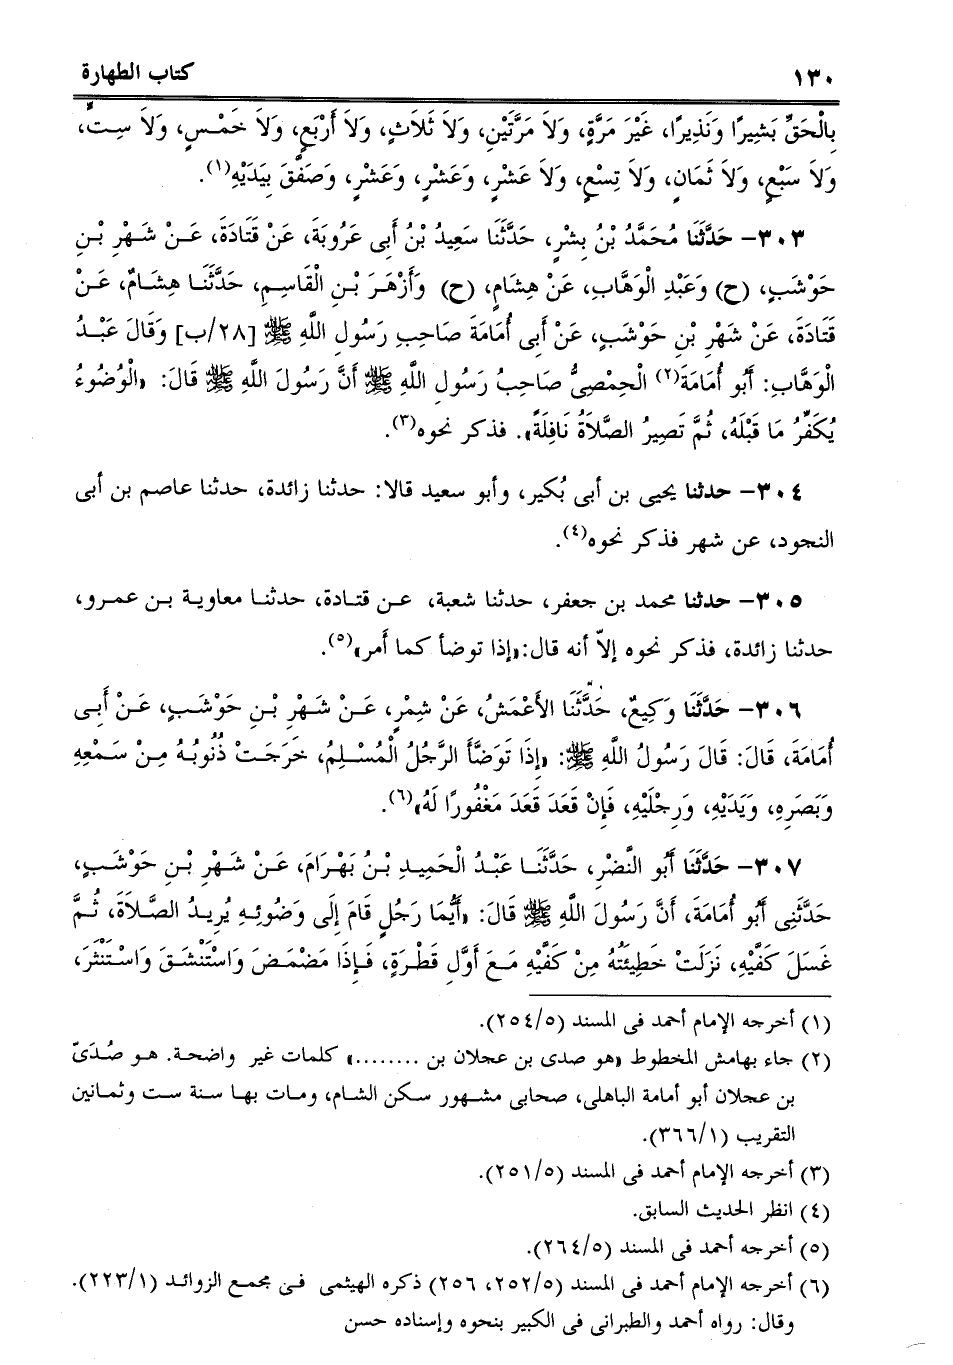 ١٣٠ كتاب الطهارة
بِالْحَقِّ بَشِيرًا وَنَذِيرًا، غَيْرَ مَرَّةٍ، وَلاَ مَرَّتَيْنِ، وَلاَ ثَلاَثٍ، وَلاَ أَرْبَعٍ، وَلاَ خَمْسٍ، وَلاَ سِتٍّ،
وَلاَ سَبْعٍ، وَلاَ ثَمَانٍ، وَلاَ تِسْعٍ، وَلاَ عَشْرٍ، وَعَشْرٍ، وَعَشْرٍ، وَصَفَّقَ بِيَدَيْهِ(١).
٣٠٣- حَدَّثَنَا مُحَمَّدُ بْنُ بِشْرٍ، حَدَّثَنَا سَعِيدُ بْنُ أَبِى عَرُوبَةَ، عَنْ قَتَادَةَ، عَنْ شَهْرِ بْنِ
حَوْشَبٍ، (ح) وَعَبْدِ الْوَهَّابِ، عَنْ هِشَامٍ، (ح) وَأَزْهَرَ بْنِ الْقَاسِمِ، حَدَّثَنَا هِشَامٌ، عَنْ
قَتَادَةَ، عَنْ شَهْرِ بْنِ حَوْشَبٍ، عَنْ أَبِى أُمَامَةَ صَاحِبِ رَسُولِ اللَّهِ ﷺ [٢٨/ب] وَقَالَ عَبْدُ
الْوَهَّابِ: أَبُو أُمَامَةَ(٢) الْحِمْصِىُّ صَاحِبُ رَسُولِ اللَّهِ ﷺ أَنَّ رَسُولَ اللَّهِ ﷺ قَالَ: «الْوُضُوءُ
يُكَفِّرُ مَا قَبْلَهُ، ثُمَّ تَصِيرُ الصَّلاَةُ نَافِلَةً». فذكر نحوه(٣).
٣٠٤- حدثنا يحيى بن أبى بُكير، وأبو سعيد قالا: حدثنا زائدة، حدثنا عاصم بن أبى
النجود، عن شهر فذكر نحوه(٤).
٣٠٥- حدثنا محمد بن جعفر، حدثنا شعبة، عن قتادة، حدثنا معاوية بن عمرو،
حدثنا زائدة، فذكر نحوه إلاّ أنه قال:«إذا توضأ كما أُمر»(٥).
٣٠٦- حَدَّثَنَا وَكِيعٌ، حَدَّثَنَا الأَعْمَشُ، عَنْ شِمْرٍ، عَنْ شَهْرِ بْنِ حَوْشَبٍ، عَنْ أَبِى
أُمَامَةَ، قَالَ: قَالَ رَسُولُ اللَّهِ ﷺ: «إِذَا تَوَضَّأَ الرَّجُلُ الْمُسْلِمُ، خَرَجَتْ ذُنُوبُهُ مِنْ سَمْعِهِ
وَبَصَرِهِ، وَيَدَيْهِ، وَرِجْلَيْهِ، فَإِنْ قَعَدَ قَعَدَ مَغْفُورًا لَهُ»(٦).
٣٠٧- حَدَّثَنَا أَبُو النَّضْرِ، حَدَّثَنَا عَبْدُ الْحَمِيدِ بْنُ بَهْرَامَ، عَنْ شَهْرِ بْنِ حَوْشَبٍ،
حَدَّثَنِى أَبُو أُمَامَةَ، أَنَّ رَسُولَ اللَّهِ ﷺ قَالَ: «أَيُّمَا رَجُلٍ قَامَ إِلَى وَضُوئِهِ يُرِيدُ الصَّلاَةَ، ثُمَّ
غَسَلَ كَفَّيْهِ، نَزَلَتْ خَطِيئَتُهُ مِنْ كَفَّيْهِ مَعَ أَوَّلِ قَطْرَةٍ، فَإِذَا مَضْمَضَ وَاسْتَنْشَقَ وَاسْتَنْثَرَ،
(١) أخرجه الإمام أحمد فى المسند (٢٥٤/٥).
(٢) جاء بهامش المخطوط «هو صدى بن عجلان بن ........» كلمات غير واضحة. هو صُدَىّ
بن عجلان أبو أمامة الباهلى، صحابى مشهور سكن الشام، ومات بها سنة ست وثمانين
التقريب (٣٦٦/١).
(٣) أخرجه الإمام أحمد فى المسند (٢٥١/٥).
(٤) انظر الحديث السابق.
(٥) أخرجه أحمد فى المسند (٢٦٤/٥).
(٦) أخرجه الإمام أحمد فى المسند (٢٥٢/٥، ٢٥٦) ذكره الهيثمى فى مجمع الزوائد (٢٢٣/١).
وقال: رواه أحمد والطبرانى فى الكبير بنحوه وإسناده حسن